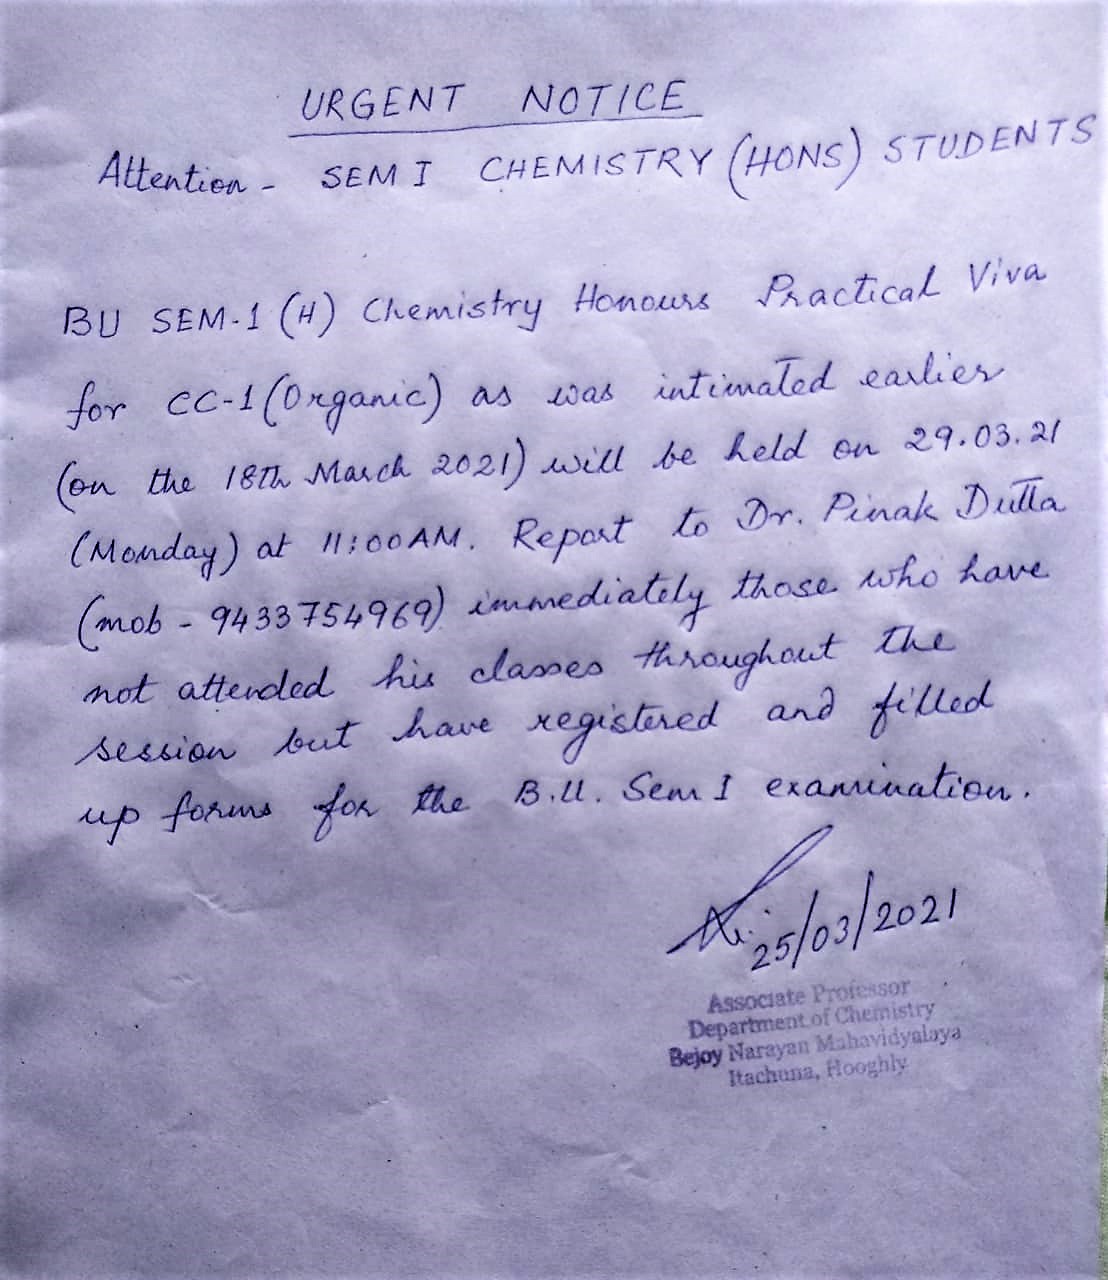 URGENT NOTICE
Attention - SEM I CHEMISTRY (HONS) STUDENTS
BU SEM-1 (H) Chemistry Honours Practical Viva
for CC-1 (Organic) as was intimated earlier
(on the 18th March 2021) will be held on 29.03.21
(Monday) at 11:00AM. Report to Dr. Pinak Dutta
(mob - 9433754969) immediately those who have
not attended his classes throughout the
session but have registered and filled
up forms for the B.U. Sem I examination.
25/03/2021
Associate Professor
Department of Chemistry
Bejoy Narayan Mahavidyalaya
Itachuna, Hooghly